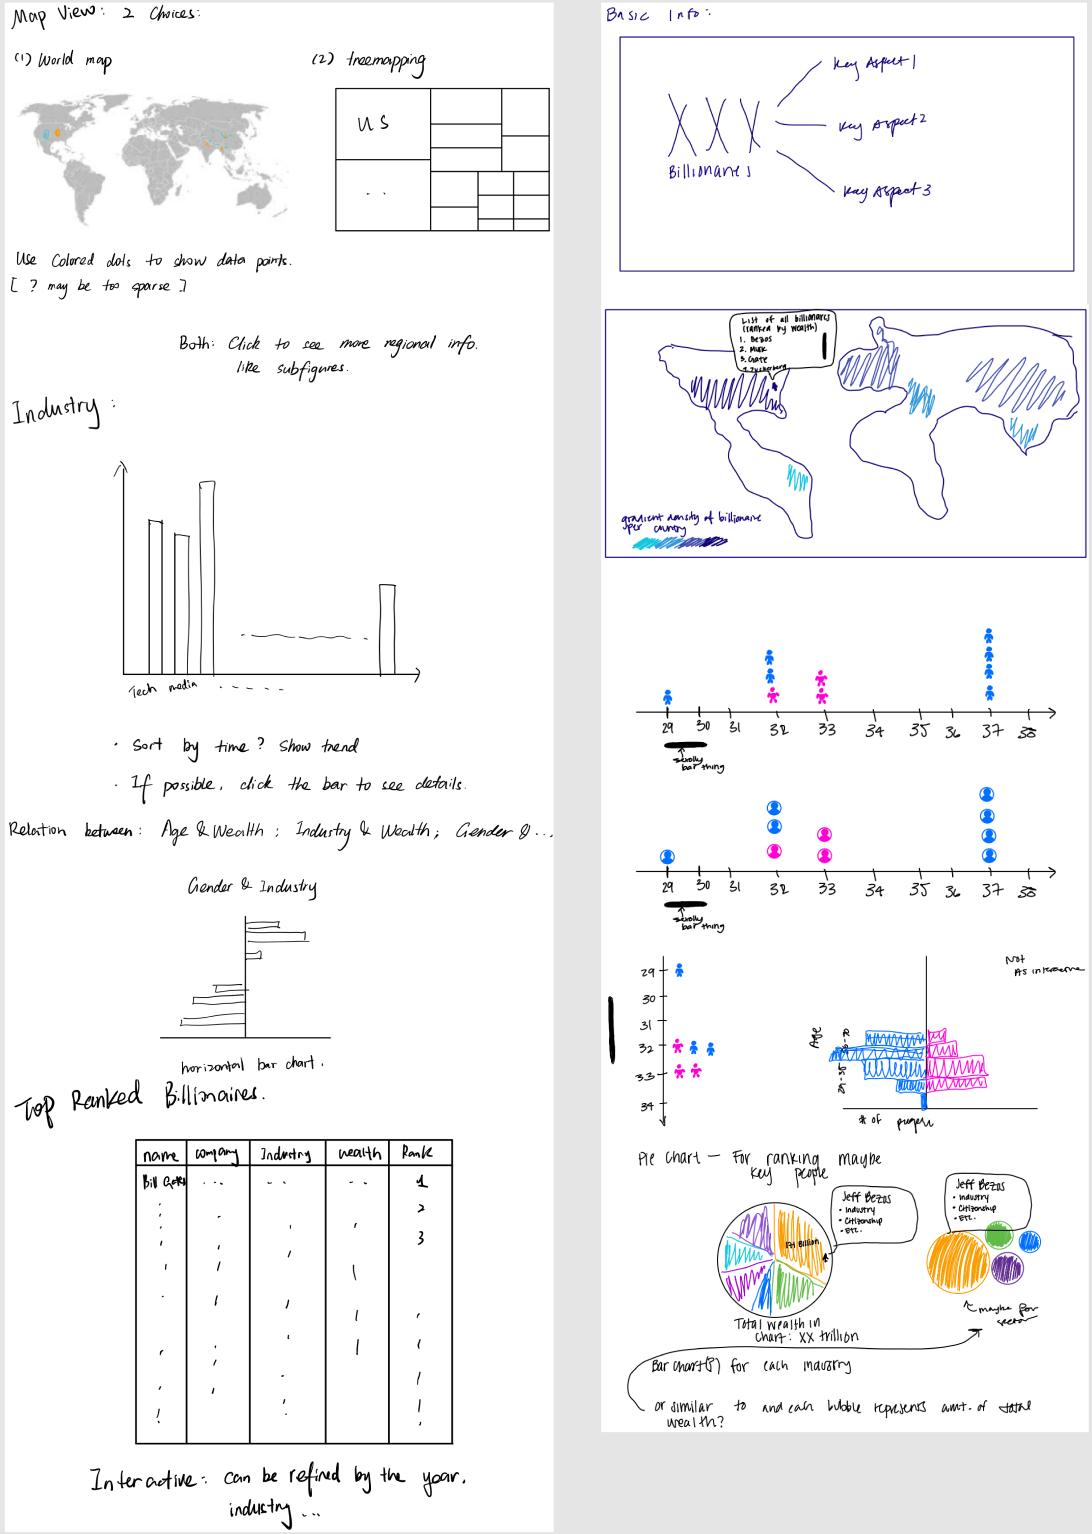 Map View: 2 Choices:
(1) World map
(2) treemapping
US
Use Colored dots to show data points.
[ ? may be too sparse ]
Both: Click to see more regional info.
like subfigures.
Industry:
Tech media
· Sort by time? Show trend
· If possible, click the bar to see details.
Relation between: Age & Wealth; Industry & Wealth; Gender & ...
Gender & Industry
horizontal bar chart.
Top Ranked Billionaires.
name company Industry wealth Rank
Bill Gates ... .. 1
2
3
Interactive: can be refined by the year.
industry ...
Basic Info:
XXX
Billionaires
Key Aspect 1
Key Aspect 2
Key Aspect 3
List of all billionaires
(ranked by wealth)
1. Bezos
2. Musk
3. Gate
4. Zuckerberg
gradient density of billionaire
per country
29 30 31 32 33 34 35 36 37 38
scrolly
bar thing
29 30 31 32 33 34 35 36 37 38
scrolly
bar thing
29
30
31
32
33
34
Not
As interactive
Age
# of people
Pie Chart — For ranking maybe
key people
Jeff Bezos
• Industry
• Citizenship
• Etc.
171 Billion
Total wealth in
chart: XX trillion
Jeff Bezos
• Industry
• Citizenship
• Etc.
maybe for
sector
Bar chart(s) for each industry
or similar to and each bubble represents amt. of total
wealth?